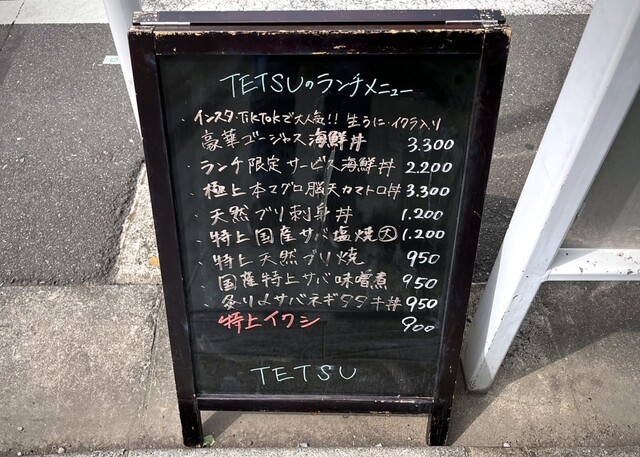 TETSUのランチメニュー
・インスタ・TikTokで大人気!! 生うに・イクラ入り
豪華ゴージャス海鮮丼 3.300
・ランチ限定サービス海鮮丼 2.200
・極上本マグロ脳天カマトロ丼 3.300
・天然ブリ刺身丼 1.200
・特上国産サバ塩焼大 1.200
・特上天然ブリ焼 950
・国産特上サバ味噌煮 950
・炙り〆サバネギタタキ丼 950
・特上イワシ 900
TETSU